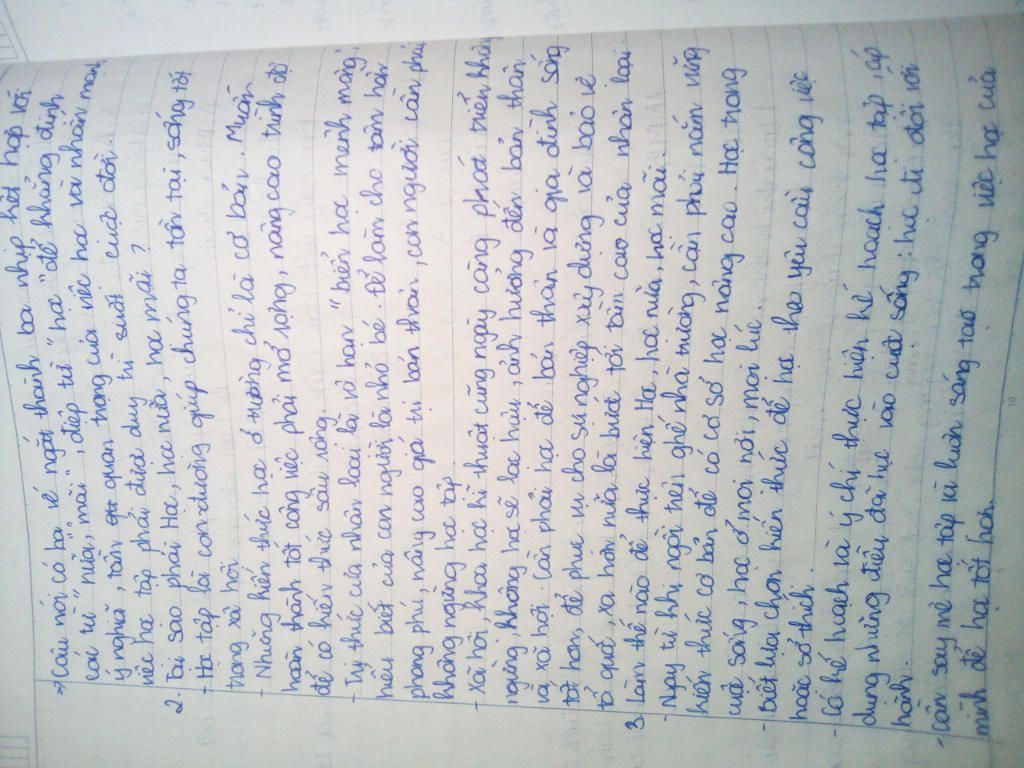 -> Câu nói có ba vế ngắt thành ba nhịp kết hợp với
các từ "nữa", "mãi", điệp từ "học" để khẳng định
ý nghĩa, tầm quan trọng của việc học và nhấn mạnh
việc học tập phải được duy trì suốt cuộc đời.
2. Tại sao phải Học, học nữa, học mãi?
- Học tập là con đường giúp chúng ta tồn tại, sống tốt
trong xã hội
- Những kiến thức học ở trường chỉ là cơ bản. Muốn
hoàn thành tốt công việc phải mở rộng, nâng cao trình độ
để có kiến thức sâu rộng.
- Tri thức của nhân loại là vô hạn "biển học mênh mông,
hiểu biết của con người là nhỏ bé. Để làm cho tâm hồn
phong phú, nâng cao giá trị bản thân, con người cần phải
không ngừng học tập
- Xã hội, khoa học kĩ thuật cũng ngày càng phát triển không
ngừng, không học sẽ lạc hậu, ảnh hưởng đến bản thân
và xã hội. Cần phải học để bản thân và gia đình sống
tốt hơn, để phục vụ cho sự nghiệp xây dựng và bảo vệ
tổ quốc, xa hơn nữa là bước tới tầm cao của nhân loại.
3. Làm thế nào để thực hiện Học, học nữa, học mãi.
- Ngay từ khi ngồi trên ghế nhà trường, cần phải nắm vững
kiến thức cơ bản để có cơ sở học nâng cao. Học trong
cuộc sống, học ở mọi nơi, mọi lúc.
- Biết lựa chọn kiến thức để học theo yêu cầu công việc
hoặc sở thích.
- Có kế hoạch và ý chí thực hiện kế hoạch học tập, áp
dụng những điều đã học vào cuộc sống; học đi đôi với
hành.
- Cần say mê học tập và luôn sáng tạo trong việc học của
mình để học tốt hơn.